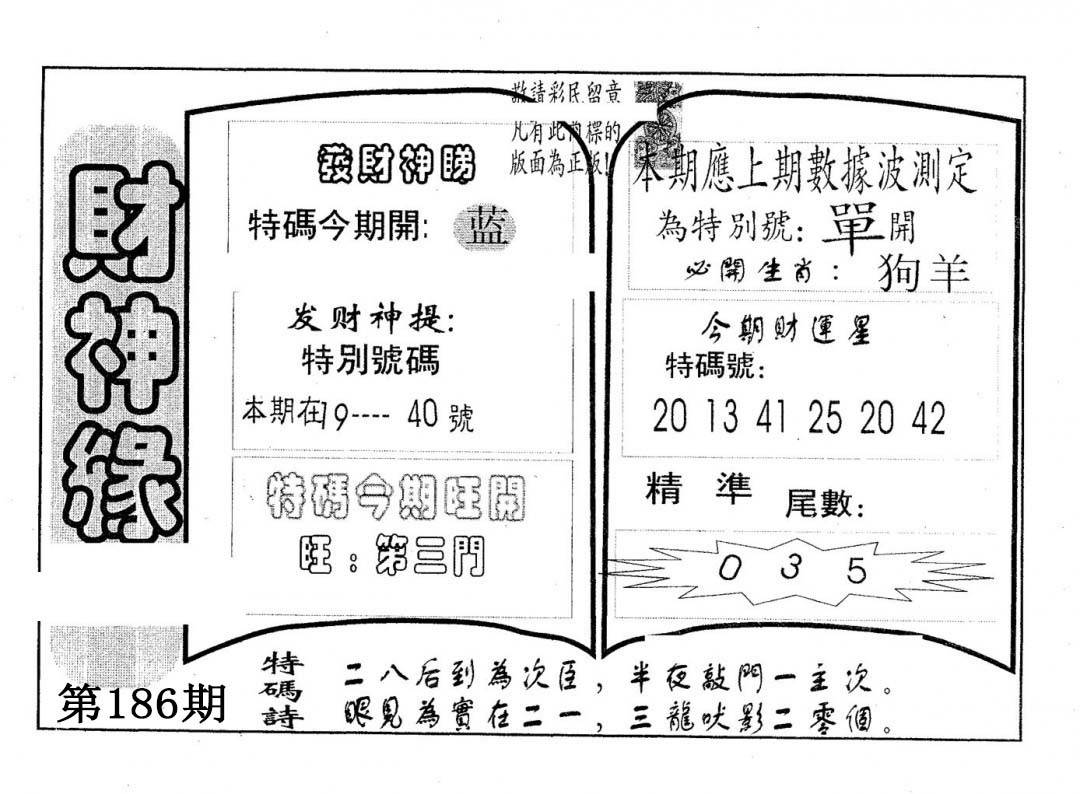 財神緣
第186期
敬請彩民留意
凡有此商標的
版面為正版!
發財神睇
特碼今期開: 蓝
发财神提:
特別號碼
本期在19---- 40號
特碼今期旺開
旺:第三門
本期應上期數據波測定
為特別號:單開
必開生肖: 狗羊
今期財運星
特碼號:
20 13 41 25 20 42
精 準 尾數:
0 3 5
特碼詩
二八后到為次臣,半夜敲門一主次。
眼見為實在二一,三龍吠影二零個。